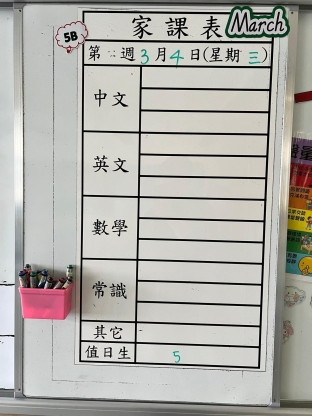 5B
家課表 March
第 週 3 月 4 日(星期 三)
中文
英文
數學
常識
其它
值日生 5